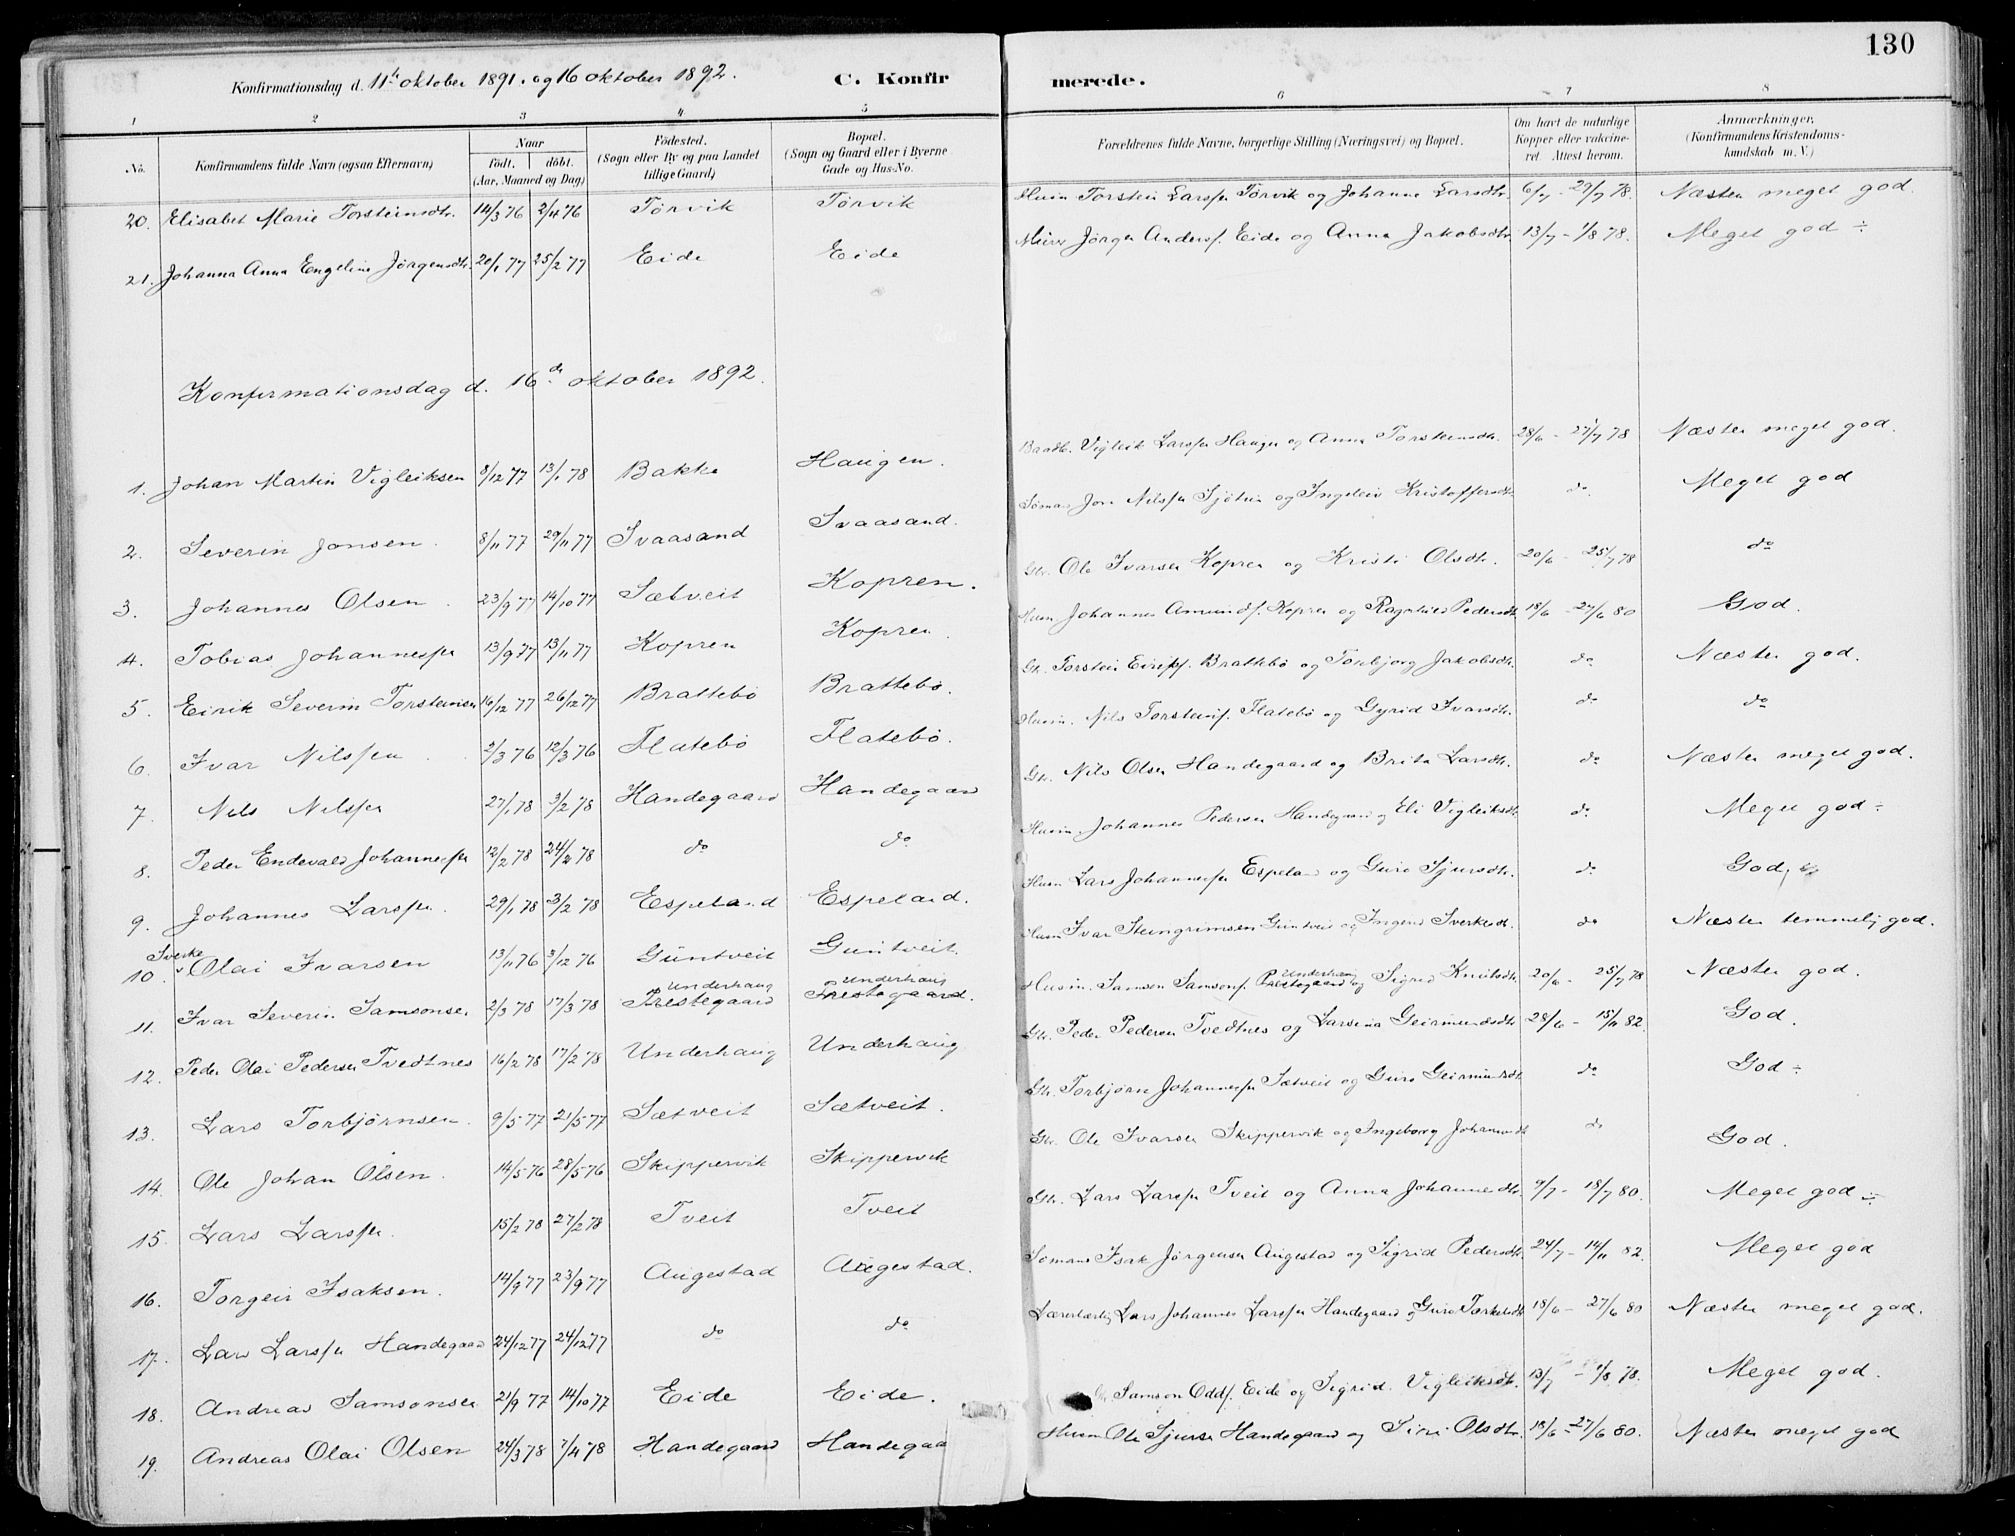 130
Konfirmationsdag d. 11te oktober 1891. og 16 oktober 1892.
C. Konfirmerede.
1 2 3 4 5 6 7 8
No. Konfirmandens fulde Navn (ogsaa Efternavn) Naar födt. döbt. (Aar, Maaned og Dag) Födested. (Sogn eller By og paa Landet tillige Gaard) Bopæl. (Sogn og Gaard eller i Byerne Gade og Hus-No. Forældrenes fulde Navne, borgerlige Stilling (Næringsvei) og Bopæl. Om havt de naturlige Kopper eller vakcineret. Attest herom. Anmærkninger, (Konfirmandens Kristendomskundskab m. V.)
20. Elisabet Marie Torsteinsdtr. 14/3 76 2/4 76 Törvik Törvik Husm Torstein Larssen Törvik og Johanne Larsdtr. 6/7 - 29/7 78. Næsten meget god.
21. Johanna Anna Engeline Jørgensdtr. 20/1 77 25/2 77 Eide Eide Murer Jørgen Anderss. Eide og Anna Jakobsdtr. 13/7 - 1/8 78. Meget god ÷
Konfirmationsdag d. 16de oktober 1892.
1. Johan Martin Vigleiksen 8/12 77 13/1 78 Bakke Haugen. Vigleik Larssen Haugen og Anna Torsteinsdtr. 28/6 - 27/7 78 Næsten meget god.
2. Severin Jonsen. 8/11 77 29/11 77 Svaasand Svaasand. Sømand Jon Nilssen og Ingeleiv Kristoffersdtr. do. Meget god
3. Johannes Olsen. 23/9 77 14/10 77 Sætveit Kopren. Gbr. Ole Ivarsen Kopren og Kristi Olsdtr. 20/6 - 25/7 78 do
4. Tobias Johannessen 13/9 77 13/11 77 Kopren Kopren. Husm Johannes Amunds. Kopren og Ragnhild Pedersdtr. 18/6 - 27/6 80 God.
5. Eirik Severin Torsteinsen 16/12 77 26/12 77 Brattebö Brattebö. Gbr. Torstein Eirikss. Brattebö og Torbjorg Jakobsdtr. do Næsten god.
6. Ivar Nilssen. 2/3 76 12/3 76 Flatebö Flatebö. Husm. Nils Torsteins. Flatebö og Gyrid Ivarsdtr. do do
7. Nils Nilssen 27/1 78 3/2 78 Handegaard Handegaard Gbr. Nils Olsen Handegaard og Brita Larsdtr. do Næsten meget god.
8. Peder Endevald Johannessen 12/2 78 24/2 78 do do Husm. Johannes Pedersen Handegaard og Eli Vigleiksdtr. do. Meget god ÷
9. Johannes Larssen. 29/1 78 3/2 78 Espeland Espeland. Husm Lars Johannessen Espeland og Guro Sjursdtr. do God,
10. Sverke Olai Ivarsen 13/11 76 3/12 76 Guntveit Guntveit. Husm Ivar Steingrimsen Guntveit og Sverkesdtr. do Næsten temmelig god.
11. Ivar Severin Samsonsen 2/3 78 17/3 78 Underhaug Prestegaard Underhaug Prestegaard. Husm. Samson Samsons. Underhaug Prestegaard og Sigrid Knutsdtr. 20/6 - 25/7 78 Næsten god.
12. Peder Olai Pedersen Tvedtnes 16/2 78 17/2 78 Underhaug Underhaug Gbr. Peder Pedersen Tvedtnes og Larsina Geirmundsdtr. 28/6 - 15/11 82. God.
13. Lars Torbjørnsen. 9/5 77 21/5 77 Sætveit Sætveit. Gbr. Torbjørn Johannessen Sætveit og Guro Geirmundsdtr. do God ÷
14. Ole Johan Olsen. 14/5 76 28/5 76 Skippervik Skippervik Gbr. Ole Ivarsen Skippervik og Ingeborg Johannesdtr. do God.
15. Lars Larssen. 15/2 78 27/2 78 Tveit Tveit Gbr. Lars Larssen Tveit og Anna Johannesdtr. 9/7 - 18/7 80. Meget god ÷
16. Torgeir Isaksen. 14/9 77 23/9 77 Augestad Augestad. Sömand Isak Jørgensen Augestad og Sigrid Pedersdtr. 24/7 - 14/11 82. Meget god
17. Lars Larssen Handegaard 24/12 77 24/12 77 do do Lars Johannes Larssen Handegaard og Guro Torkelsdtr. 18/6 - 27/6 80 Næsten meget god.
18. Andreas Samsonsen 21/9 77 14/10 77 Eide Eide. Samson Odds. Eide og Sigrid Vigleiksdtr. 13/7 - 1/8 78. Meget god.
19. Andreas Olai Olsen 24/3 78 7/4 78 Handegaard Handegaa Husm Ole Sjursen Handegaard og Siri Olsdtr. 18/6 - 27/6 80. Næsten meget god